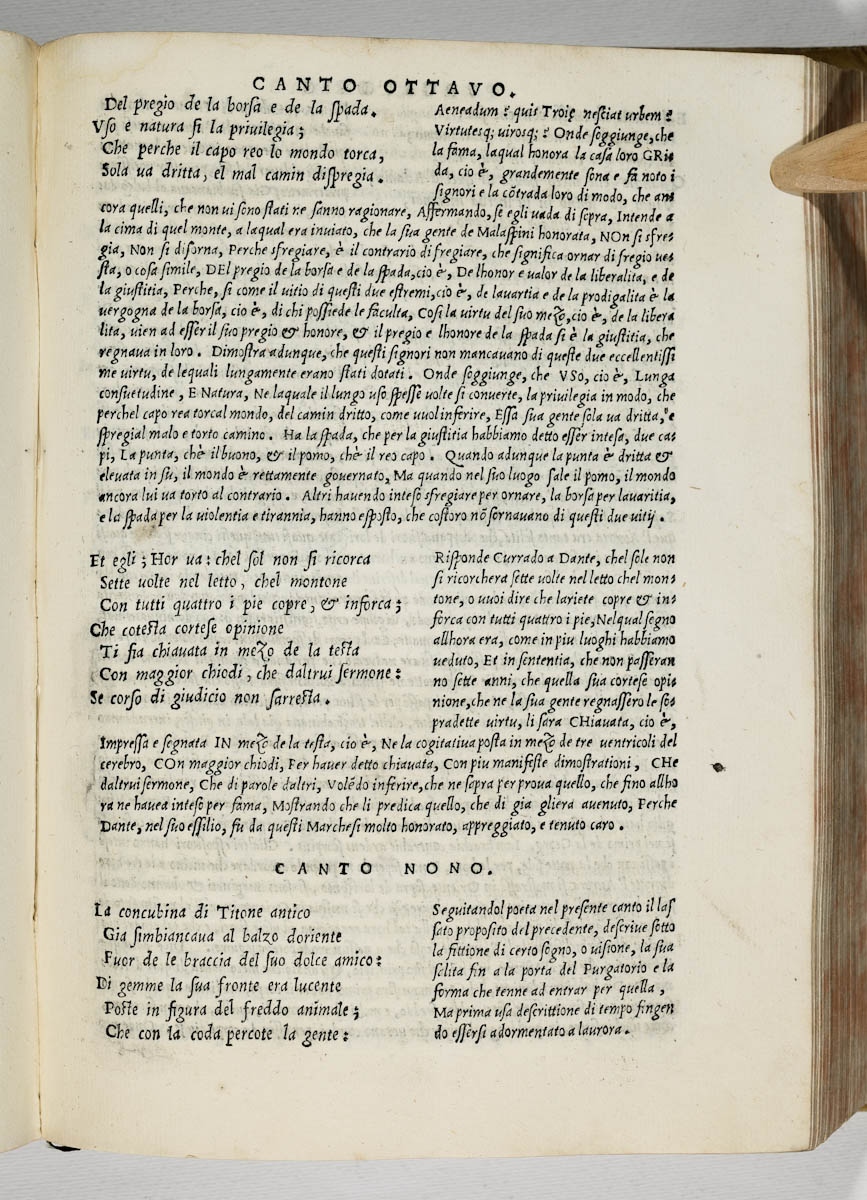 CANTO OTTAVO.
Del pregio de la borsa e de la spada.
Vso e natura si la priuilegia;
Che perche il capo reo lo mondo torca,
Sola ua dritta, el mal camin dispregia.
Aeneadum? quis Troię nesciat urbem?
Virtutesq; uirosq;? Onde soggiunge, che
la fama, laqual honora la casa loro GRi
da, cio è, grandemente sona e fa noto i
signori e la cõtrada loro di modo, che an
cora quelli, che non ui sono stati ne sanno ragionare, Affermando, se egli uada di sopra, Intende a
la cima di quel monte, a laqual era inuiato, che la sua gente de Malaspini honorata, NOn si sfre
gia, Non si disorna, Perche sfregiare, è il contrario di fregiare, che significa ornar di fregio ue
sta, o cosa simile, DEl pregio de la borsa e de la spada, cio è, De lhonor e ualor de la liberalita, e de
la giustitia, Perche, si come il uitio di questi due estremi, cio è, de lauaritia e de la prodigalita è la
uergogna de la borsa, cio è, di chi possiede le faculta, Cosi la uirtu del suo mezo, cio è, de la libera
lita, uien ad esser il suo pregio & honore, & il pregio e lhonore de la spada si è la giustitia, che
regnaua in loro. Dimostra adunque, che questi signori non mancauano di queste due eccellentissi
me uirtu, de lequali lungamente erano stati dotati. Onde soggiunge, che VSo, cio è, Lunga
consuetudine, E Natura, Ne laquale il lungo uso spesse uolte si conuerte, la priuilegia in modo, che
perchel capo rea torcal mondo, del camin dritto, come uuol inferire, Essa sua gente sola ua dritta, e
spregial malo e torto camino. Ha la spada, che per la giustitia habbiamo detto esser intesa, due ca
pi, La punta, ch'è il buono, & il pomo, ch'è il reo capo. Quando adunque la punta è dritta &
eleuata in su, il mondo è rettamente gouernato, Ma quando nel suo luogo sale il pomo, il mondo
ancora lui ua torto al contrario. Altri hauendo inteso sfregiare per ornare, la borsa per lauaritia,
e la spada per la uiolentia e tirannia, hanno esposto, che costoro nõ sornauano di questi due uitij.
Et egli; Hor ua: chel sol non si ricorca
Sette uolte nel letto, chel montone
Con tutti quattro i pie copre, & inforca;
Che cotesta cortese opinione
Ti fia chiauata in mezo de la testa
Con maggior chiodi, che daltrui sermone:
Se corso di giudicio non sarresta.
Risponde Currado a Dante, chel sole non
si ricorchera sette uolte nel letto chel mon
tone, o uuoi dire che lariete copre & in
forca con tutti quattro i pie, Nel qual segno
allhora era, come in piu luoghi habbiamo
ueduto, Et in sententia, che non passeran
no sette anni, che quella sua cortese opi
nione, che ne la sua gente regnassero le so
pradette uirtu, li sara CHiauata, cio è,
Impressa e segnata IN mezo de la testa, cio è, Ne la cogitatiua posta in mezo de tre uentricoli del
cerebro, COn maggior chiodi, Per hauer detto chiauata, Con piu manifeste dimostrationi, CHe
daltrui sermone, Che di parole daltri, Volẽdo inferire, che ne sapra per proua quello, che fino allho
ra ne hauea inteso per fama, Mostrando che li predica quello, che di gia gliera auenuto, Perche
Dante, nel suo essilio, fu da questi Marchesi molto honorato, appreggiato, e tenuto caro.
CANTO NONO.
La concubina di Titone antico
Gia simbiancaua al balzo doriente
Fuor de le braccia del suo dolce amico:
Di gemme la sua fronte era lucente
Poste in figura del freddo animale;
Che con la coda percote la gente:
Seguitandol poeta nel presente canto il las
sato proposito del precedente, descriue sotto
la fittione di certo segno, o uisione, la sua
salita fin a la porta del Purgatorio e la
forma che tenne ad entrar per quella,
Ma prima usa descrittione di tempo fingen
do essersi adormentato a laurora.